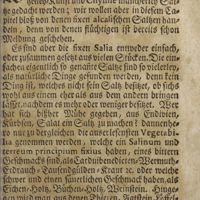 gehen/Kunst und Chymie mancherley Sal-
tze gedacht werden; wir wollen aber in diesem Ca-
pitel bloß von denen fixen alcalischen Saltzen han-
deln, denn von denen flüchtigen ist bereits schon
Meldung geschehen.
Es sind aber die fixen Salia entweder einfach,
oder zusammen gesetzt aus vielen Stücken. Die ein-
fachen eigentlich so genante Saltze sind so vielerley,
als natürliche Dinge gefunden werden, denn kein
Ding ist, welches nicht sein Saltz besitzet, ob sichs
wohl aus einem eher als aus dem andern bringen
lässet, nachdem es mehr oder weniger besitzet. Wer
hat sich bißher Mühe gegeben, aus Endivien,
Kürbsen, Salat ein Saltz zu machen? dannenhe-
ro nur zu vergleichen die auserlesensten Vegetabi-
lia genommen werden, welche ein Salinum und
terreum principium fixius haben, eines bittern
Geschmacks sind, als Cardubenedicten-Wermuth-
Erdrauch-Tausendgülden-Kraut &c. oder etwas
schwer und einen säuerlichen Geschmack haben, als
Eichen-Holtz, Büchen-Holtz, Weinstein. Hinge-
gen wird man aus denen